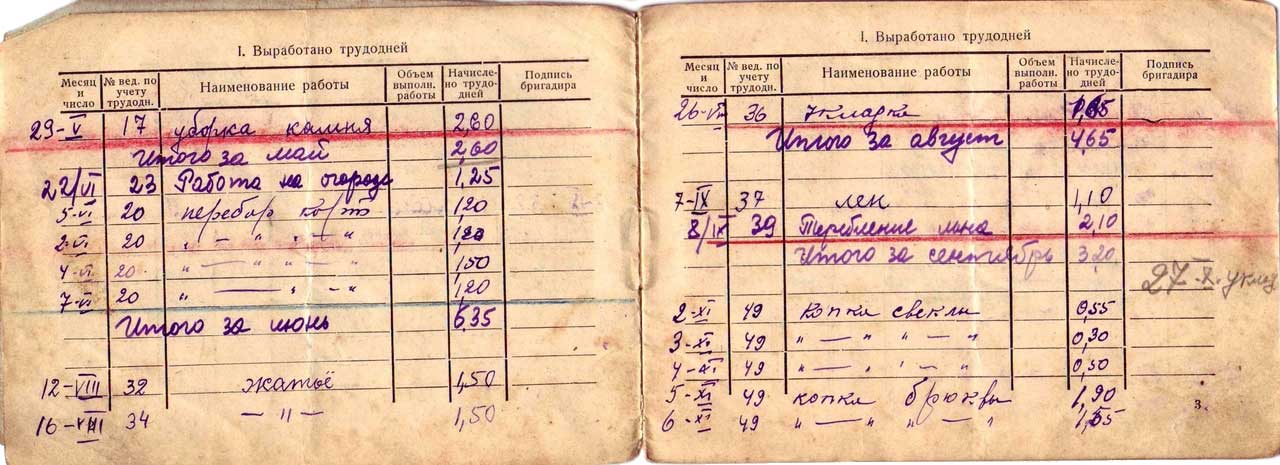 I. Выработано трудодней
Месяц и число № вед. по учету трудодн. Наименование работы Объем выполн. работы Начислено трудодней Подпись бригадира
29-V 17 уборка камня 2,60
Итого за май 2,60
22/VI 23 Работа на огороде 1,25
5-VI 20 перебор карт 1,20
2-VI 20 " — " " — " 1,20
4-VI 20 " — " " — " 1,50
7-VI 20 " — " — " 1,20
Итого за июнь 6,35
12-VIII 32 жатьё 1,50
16-VIII 34 — " — 1,50
I. Выработано трудодней
Месяц и число № вед. по учету трудодн. Наименование работы Объем выполн. работы Начислено трудодней Подпись бригадира
26- 36 1,65
Итого за август 4,65
7-IX 37 лен 1,10
8/IX 39 Теребление льна 2,10
Итого за сентябрь 3,20
27-X.
2-XI 49 Копка свеклы 0,55
3-XI 49 " — " — " — " 0,30
4-XI 49 " — " " — " 0,50
5-XI 49 копка брюквы 1,90
6-XI 49 " — " " — " 1,65
3